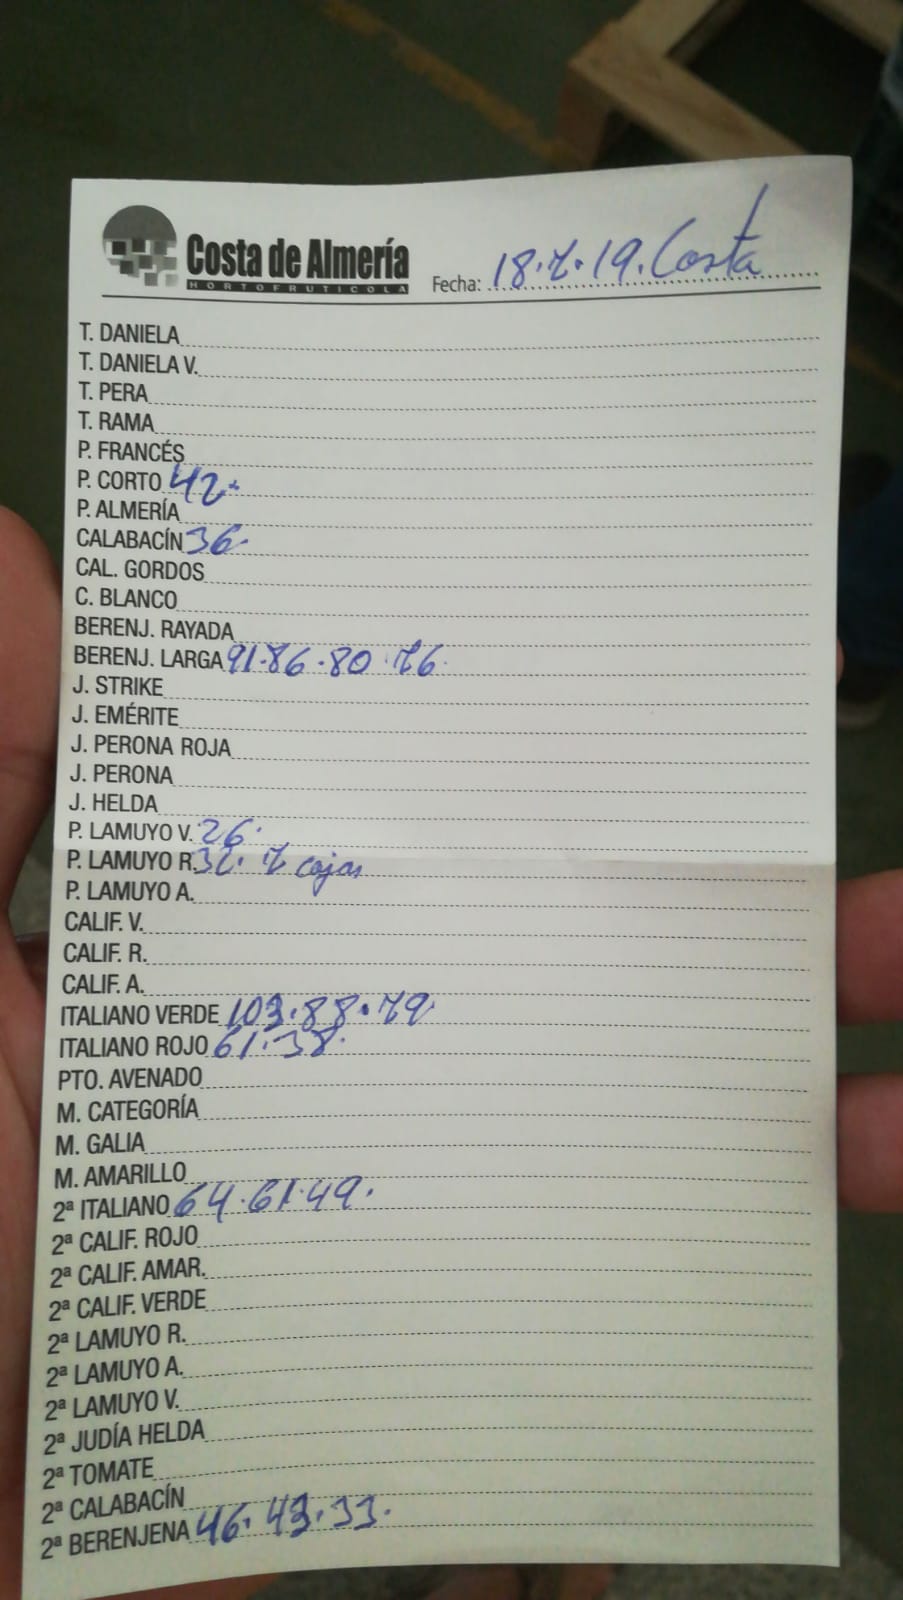 Costa de Almería
HORTOFRUTICOLA
Fecha: 18.7.19. Costa
T. DANIELA
T. DANIELA V.
T. PERA
T. RAMA
P. FRANCÉS
P. CORTO 42.
P. ALMERÍA
CALABACÍN 36.
CAL. GORDOS
C. BLANCO
BERENJ. RAYADA
BERENJ. LARGA 91.86.80.76.
J. STRIKE
J. EMÉRITE
J. PERONA ROJA
J. PERONA
J. HELDA
P. LAMUYO V. 26.
P. LAMUYO R. 32. 7 cajas
P. LAMUYO A.
CALIF. V.
CALIF. R.
CALIF. A.
ITALIANO VERDE 103.88.79.
ITALIANO ROJO 61.38.
PTO. AVENADO
M. CATEGORÍA
M. GALIA
M. AMARILLO
2ª ITALIANO 64.61.49.
2ª CALIF. ROJO
2ª CALIF. AMAR.
2ª CALIF. VERDE
2ª LAMUYO R.
2ª LAMUYO A.
2ª LAMUYO V.
2ª JUDÍA HELDA
2ª TOMATE
2ª CALABACÍN
2ª BERENJENA 46.43.33.